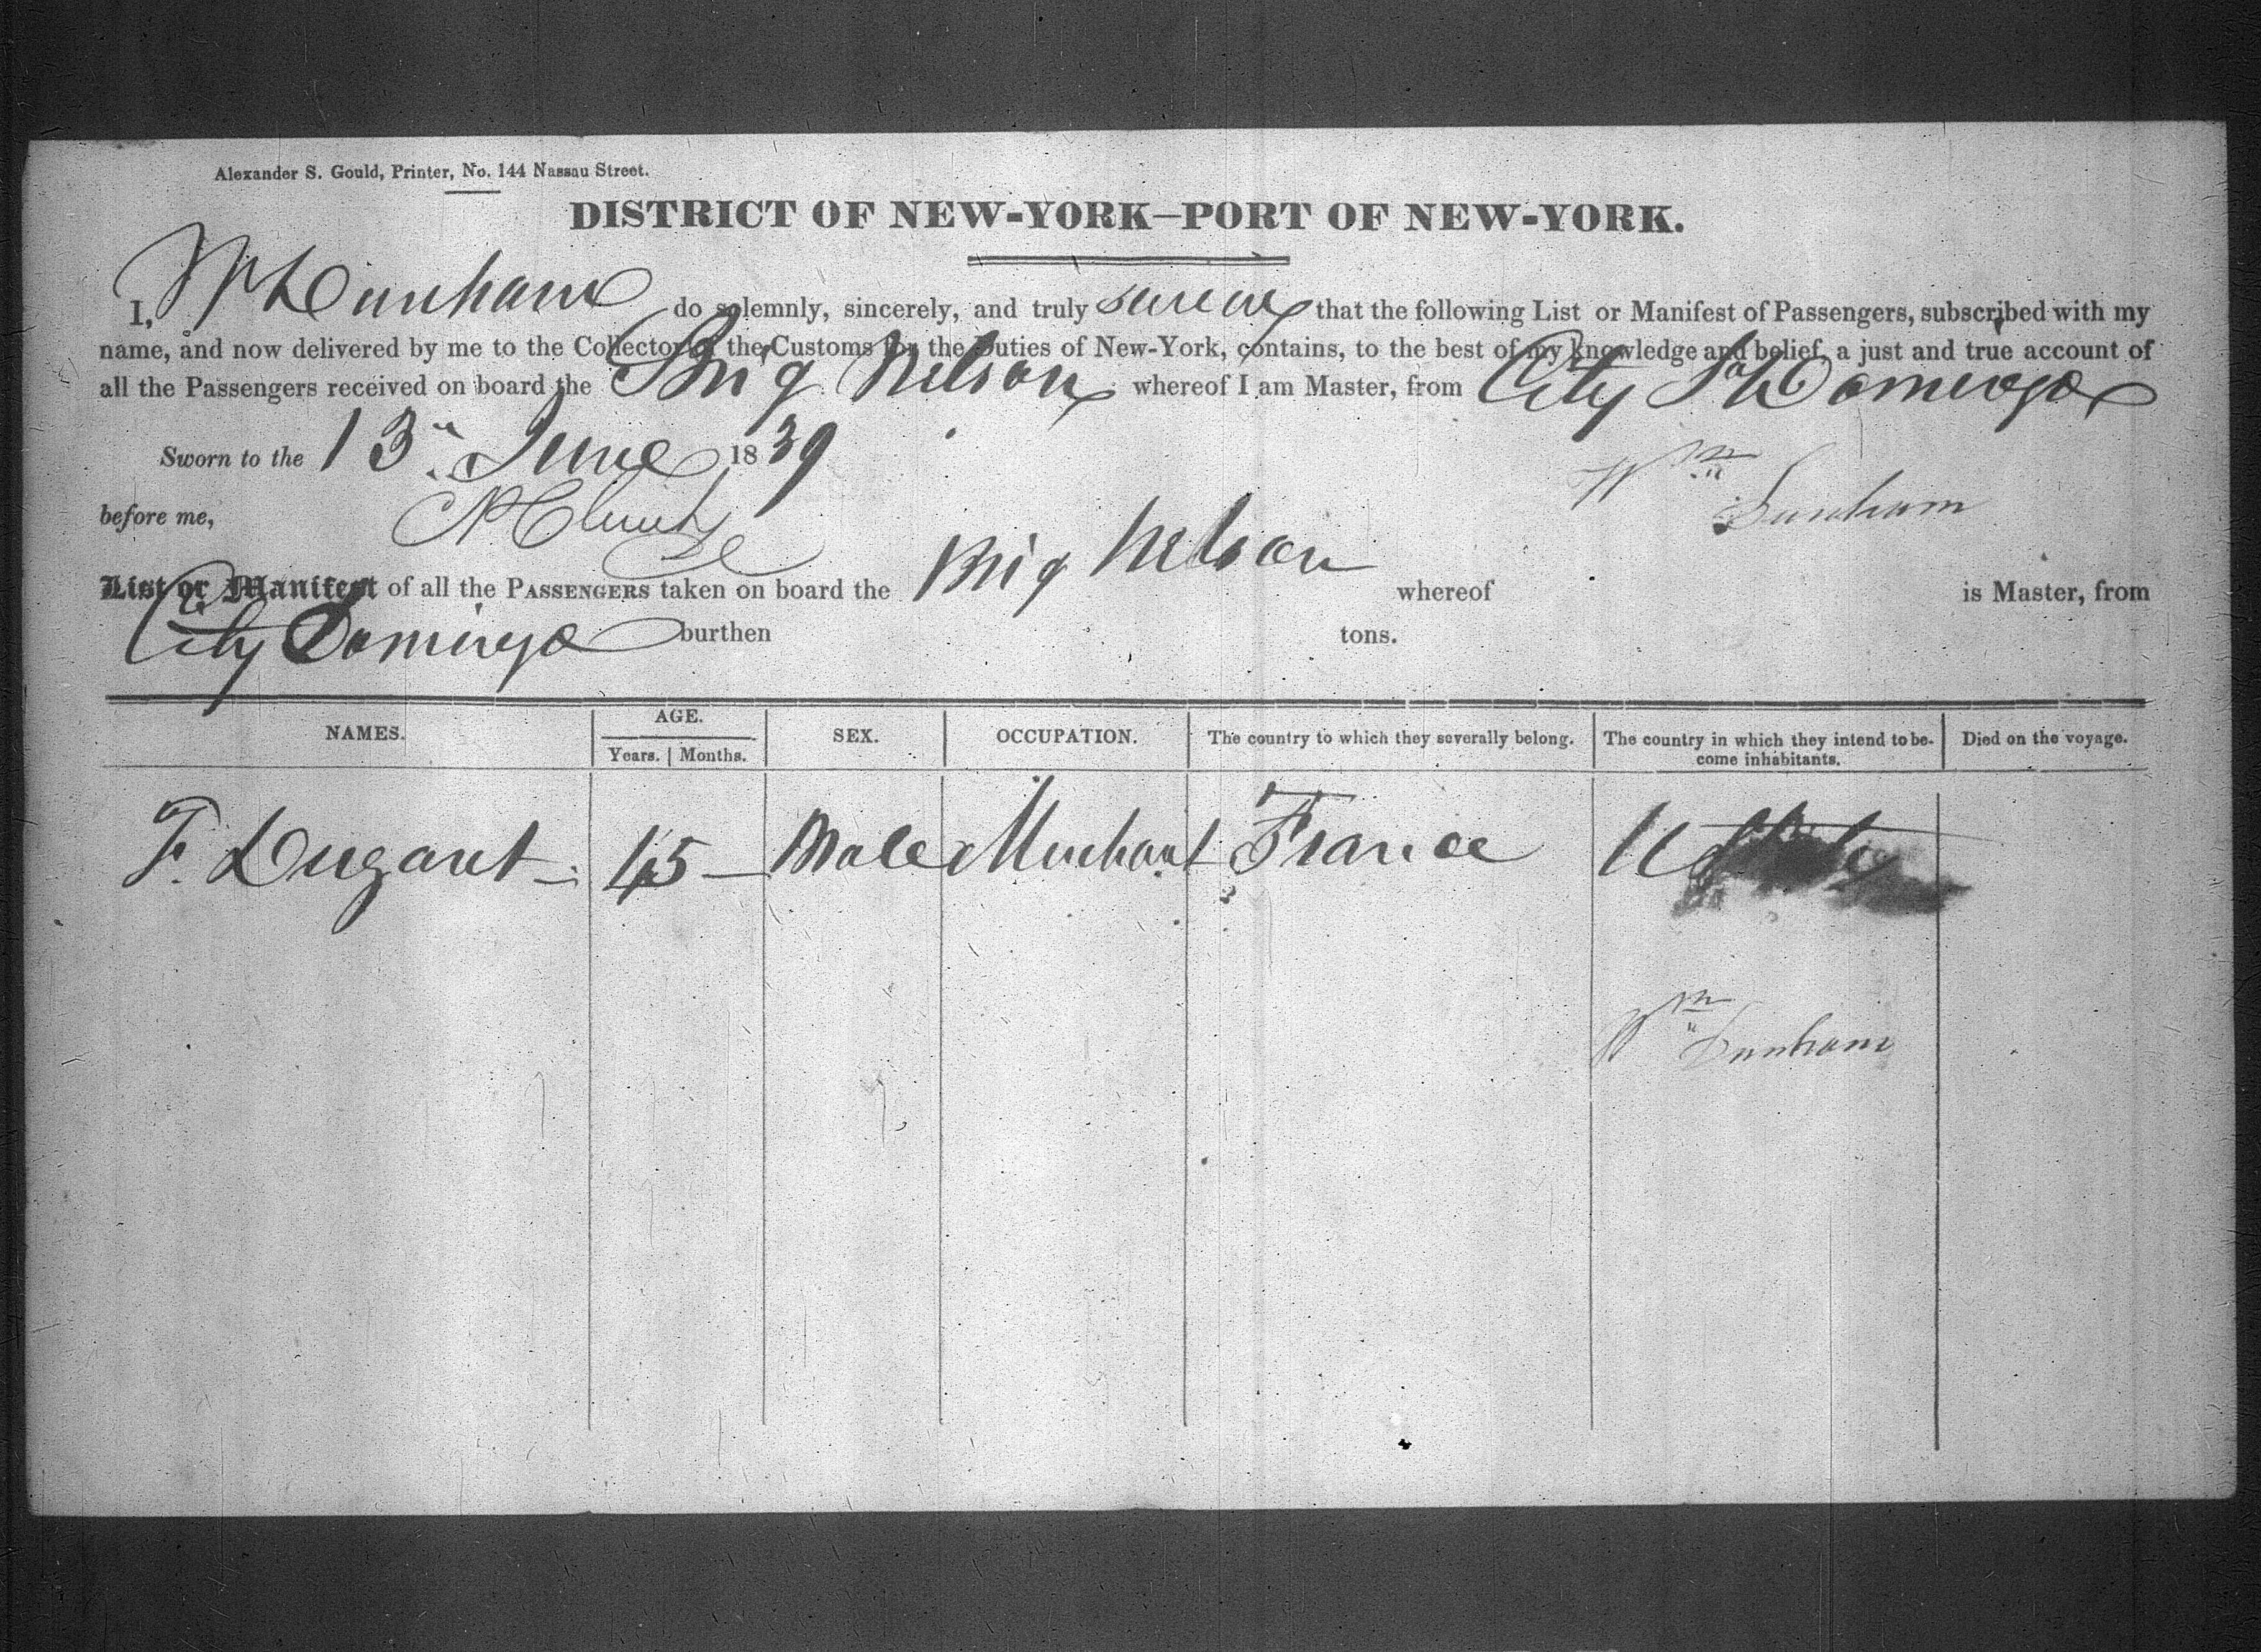 Alexander S. Gould, Printer, No. 144 Nassau Street.
DISTRICT OF NEW-YORK—PORT OF NEW-YORK.
I, Wm Dunham do solemnly, sincerely, and truly swear that the following List or Manifest of Passengers, subscribed with my
name, and now delivered by me to the Collector of the Customs for the Duties of New-York, contains, to the best of my knowledge and belief, a just and true account of
all the Passengers received on board the Brig Nelson whereof I am Master, from City St Domingo
Sworn to the 13th June 1839
Wm Dunham
before me,
List or Manifest of all the PASSENGERS taken on board the Brig Nelson whereof is Master, from
City Domingo burthen tons.
NAMES. AGE. Years. Months. SEX. OCCUPATION. The country to which they severally belong. The country in which they intend to become inhabitants. Died on the voyage.
F. Dugart 45 Male Merchant France
Wm Dunham